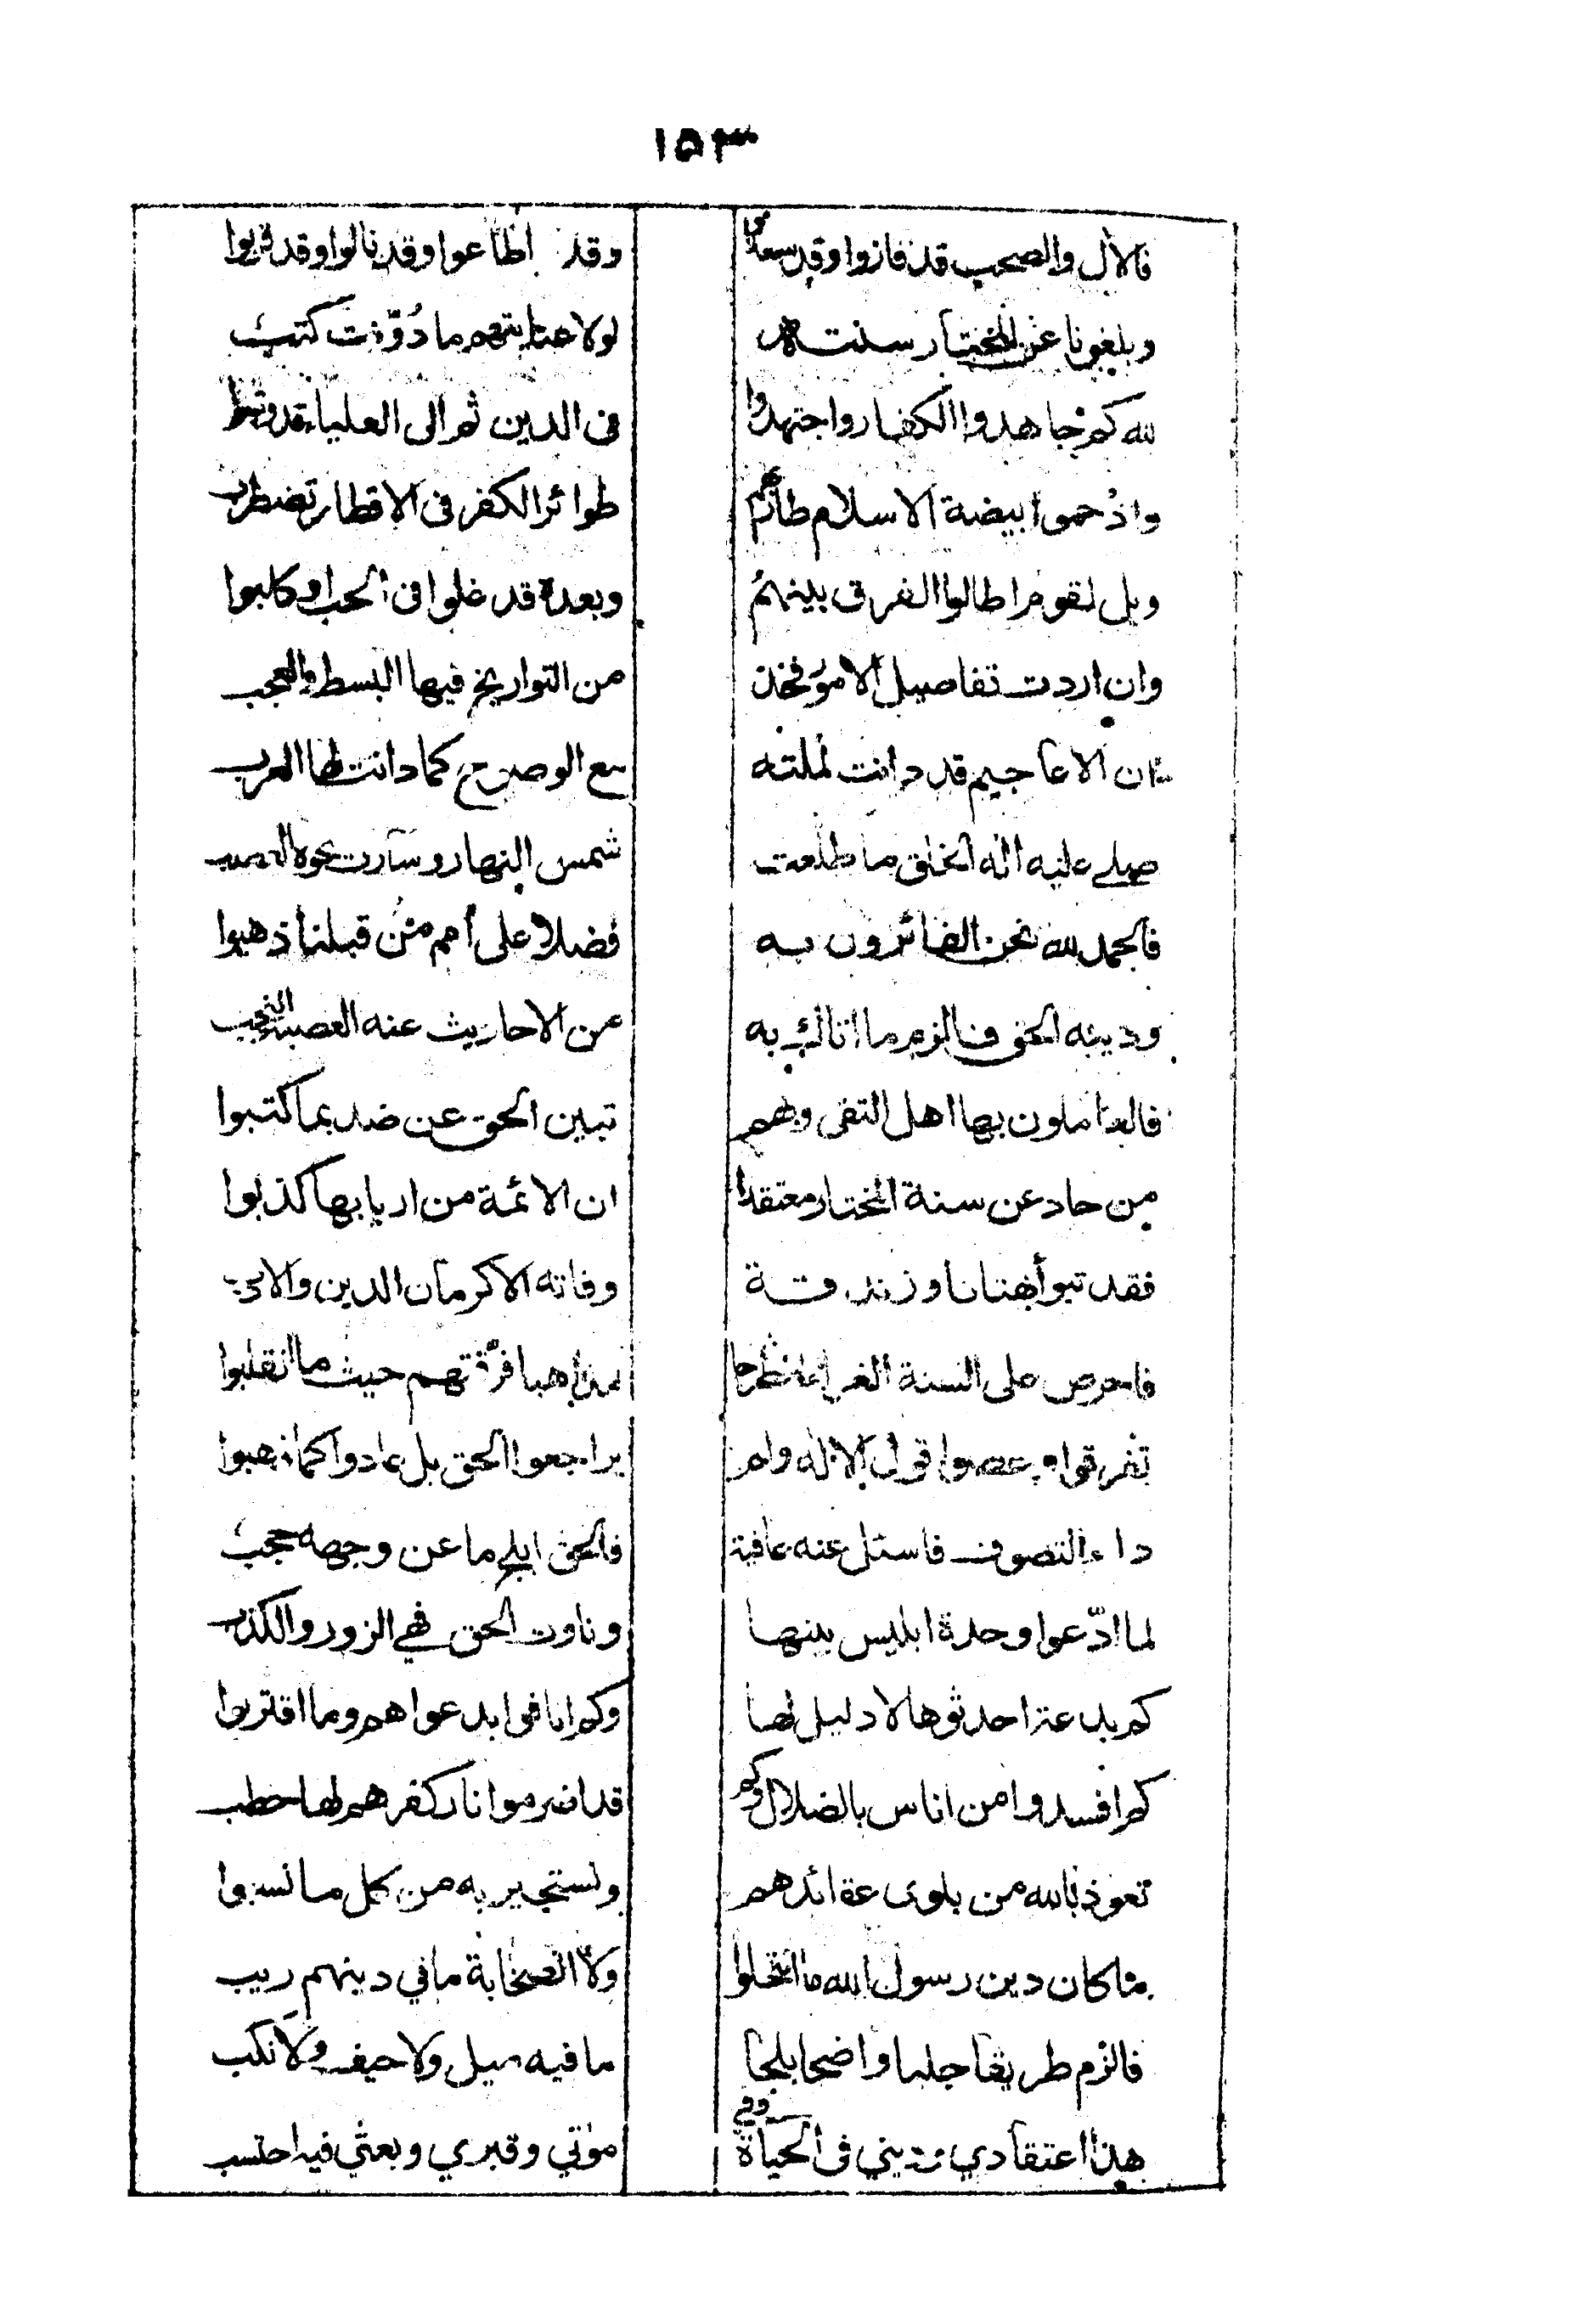 ١٥٣
فالآل والصحب قد فازوا وقد سعدوا وقد اطاعوا وقد نالوا وقد قربوا
وبلغونا عن المختار سنته لولا عنايتهم ما دُوّنت كتب
لله كم جاهدوا الكفار واجتهدوا في الدين ثم الى العلياء قد وثبوا
واذ حموا بيضة الاسلام طائرهم طوائر الكفر فى الاقطار تضطرب
ويل لقوم اطالوا الفرق بينهم وبعده قد غلوا فى الحب وكلبوا
وان اردت تفاصيل الامور فخذ من التواريخ فيها البسط والعجب
ان الاعاجيم قد دانت لملته مع الوضوح كما دانت لها العرب
صلى عليه اله الخلق ما طلعت شمس النهار وسارت نحوه
فالحمد لله نحن الفائزون به فضلا على أمم من قبلنا ذهبوا
ودينه الحق فالزم ما اتاك به من الاحاديث عنه العصبة النجب
فالعاملون بها اهل التقى وبهم تبين الحق عن ضد بما كتبوا
من حاد عن سنة المختار معتقدا ان الائمة من اربابها كذبوا
فقد تبوأ بهتانا وزندقة وفاته الاكرمان الدين والادب
فاحرص على السنة الغراء مذاهبا فرّقتهم حيث ما انقلبوا
تفرقوا وعصوا قول الاله ولم يراجعوا الحق بل عادوا كما ذهبوا
داء التصوف فاسئل عنه عافية فالحق ابلج ما عن وجهه حجب
لما ادّعوا وحدة ابليس بينها وناوت الحق فهي الزور والكذب
كم بدعة احدثوها لا دليل لها وكم اناخوا بدعواهم وما اقتربوا
كم افسدوا من اناس بالضلال وكم قد اضرموا نار كفر هم لها حطب
نعوذ بالله من بلوى عقائدهم ونستجير به من كل ما نسبوا
ما كان دين رسول الله ما انتحلوا ولا الصحابة ما في دينهم ريب
فالزم طريقا جليا واضحا بلجا ما فيه ميل ولا حيف ولا نكب
هذا اعتقادي وديني فى الحياة وفي موتي وقبري وبعثي فيه احتسب